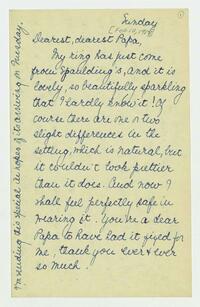 Sunday
Dearest, dearest Papa,
My ring has just come
from Spaulding's, and it is
lovely, so beautifully sparkling
that I hardly know it! Of
course there are one or two
slight differences in the
setting, which is natural, but
it couldn't look prettier
than it does. And now I
shall feel perfectly safe in
wearing it. You're a dear
Papa to have had it fixed for
me, thank you ever & ever
so much.
I'm sending this special in hopes of its arriving on Tuesday.